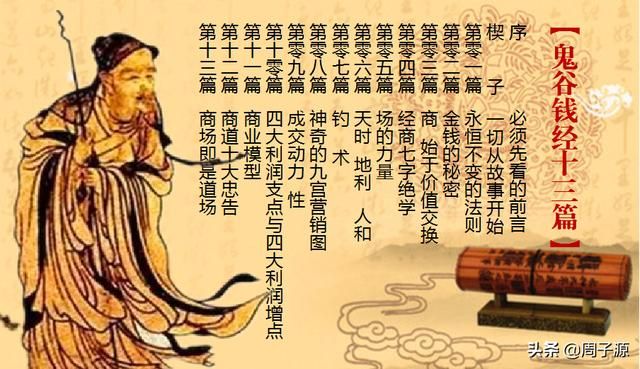 【鬼谷钱经十三篇】
序 必须先看的前言
楔 子 一切从故事开始
第零一篇 永恒不变的法则
第零二篇 金钱的秘密
第零三篇 商 始于价值交换
第零四篇 经商七字绝学
第零五篇 场的力量
第零六篇 天时 地利 人和
第零七篇 钓 术
第零八篇 神奇的九宫营销图
第零九篇 成交动力 性
第十零篇 四大利润支点与四大利润增点
第十一篇 商业模型
第十二篇 商道十大忠告
第十三篇 商场即是道场
头条 @周子源